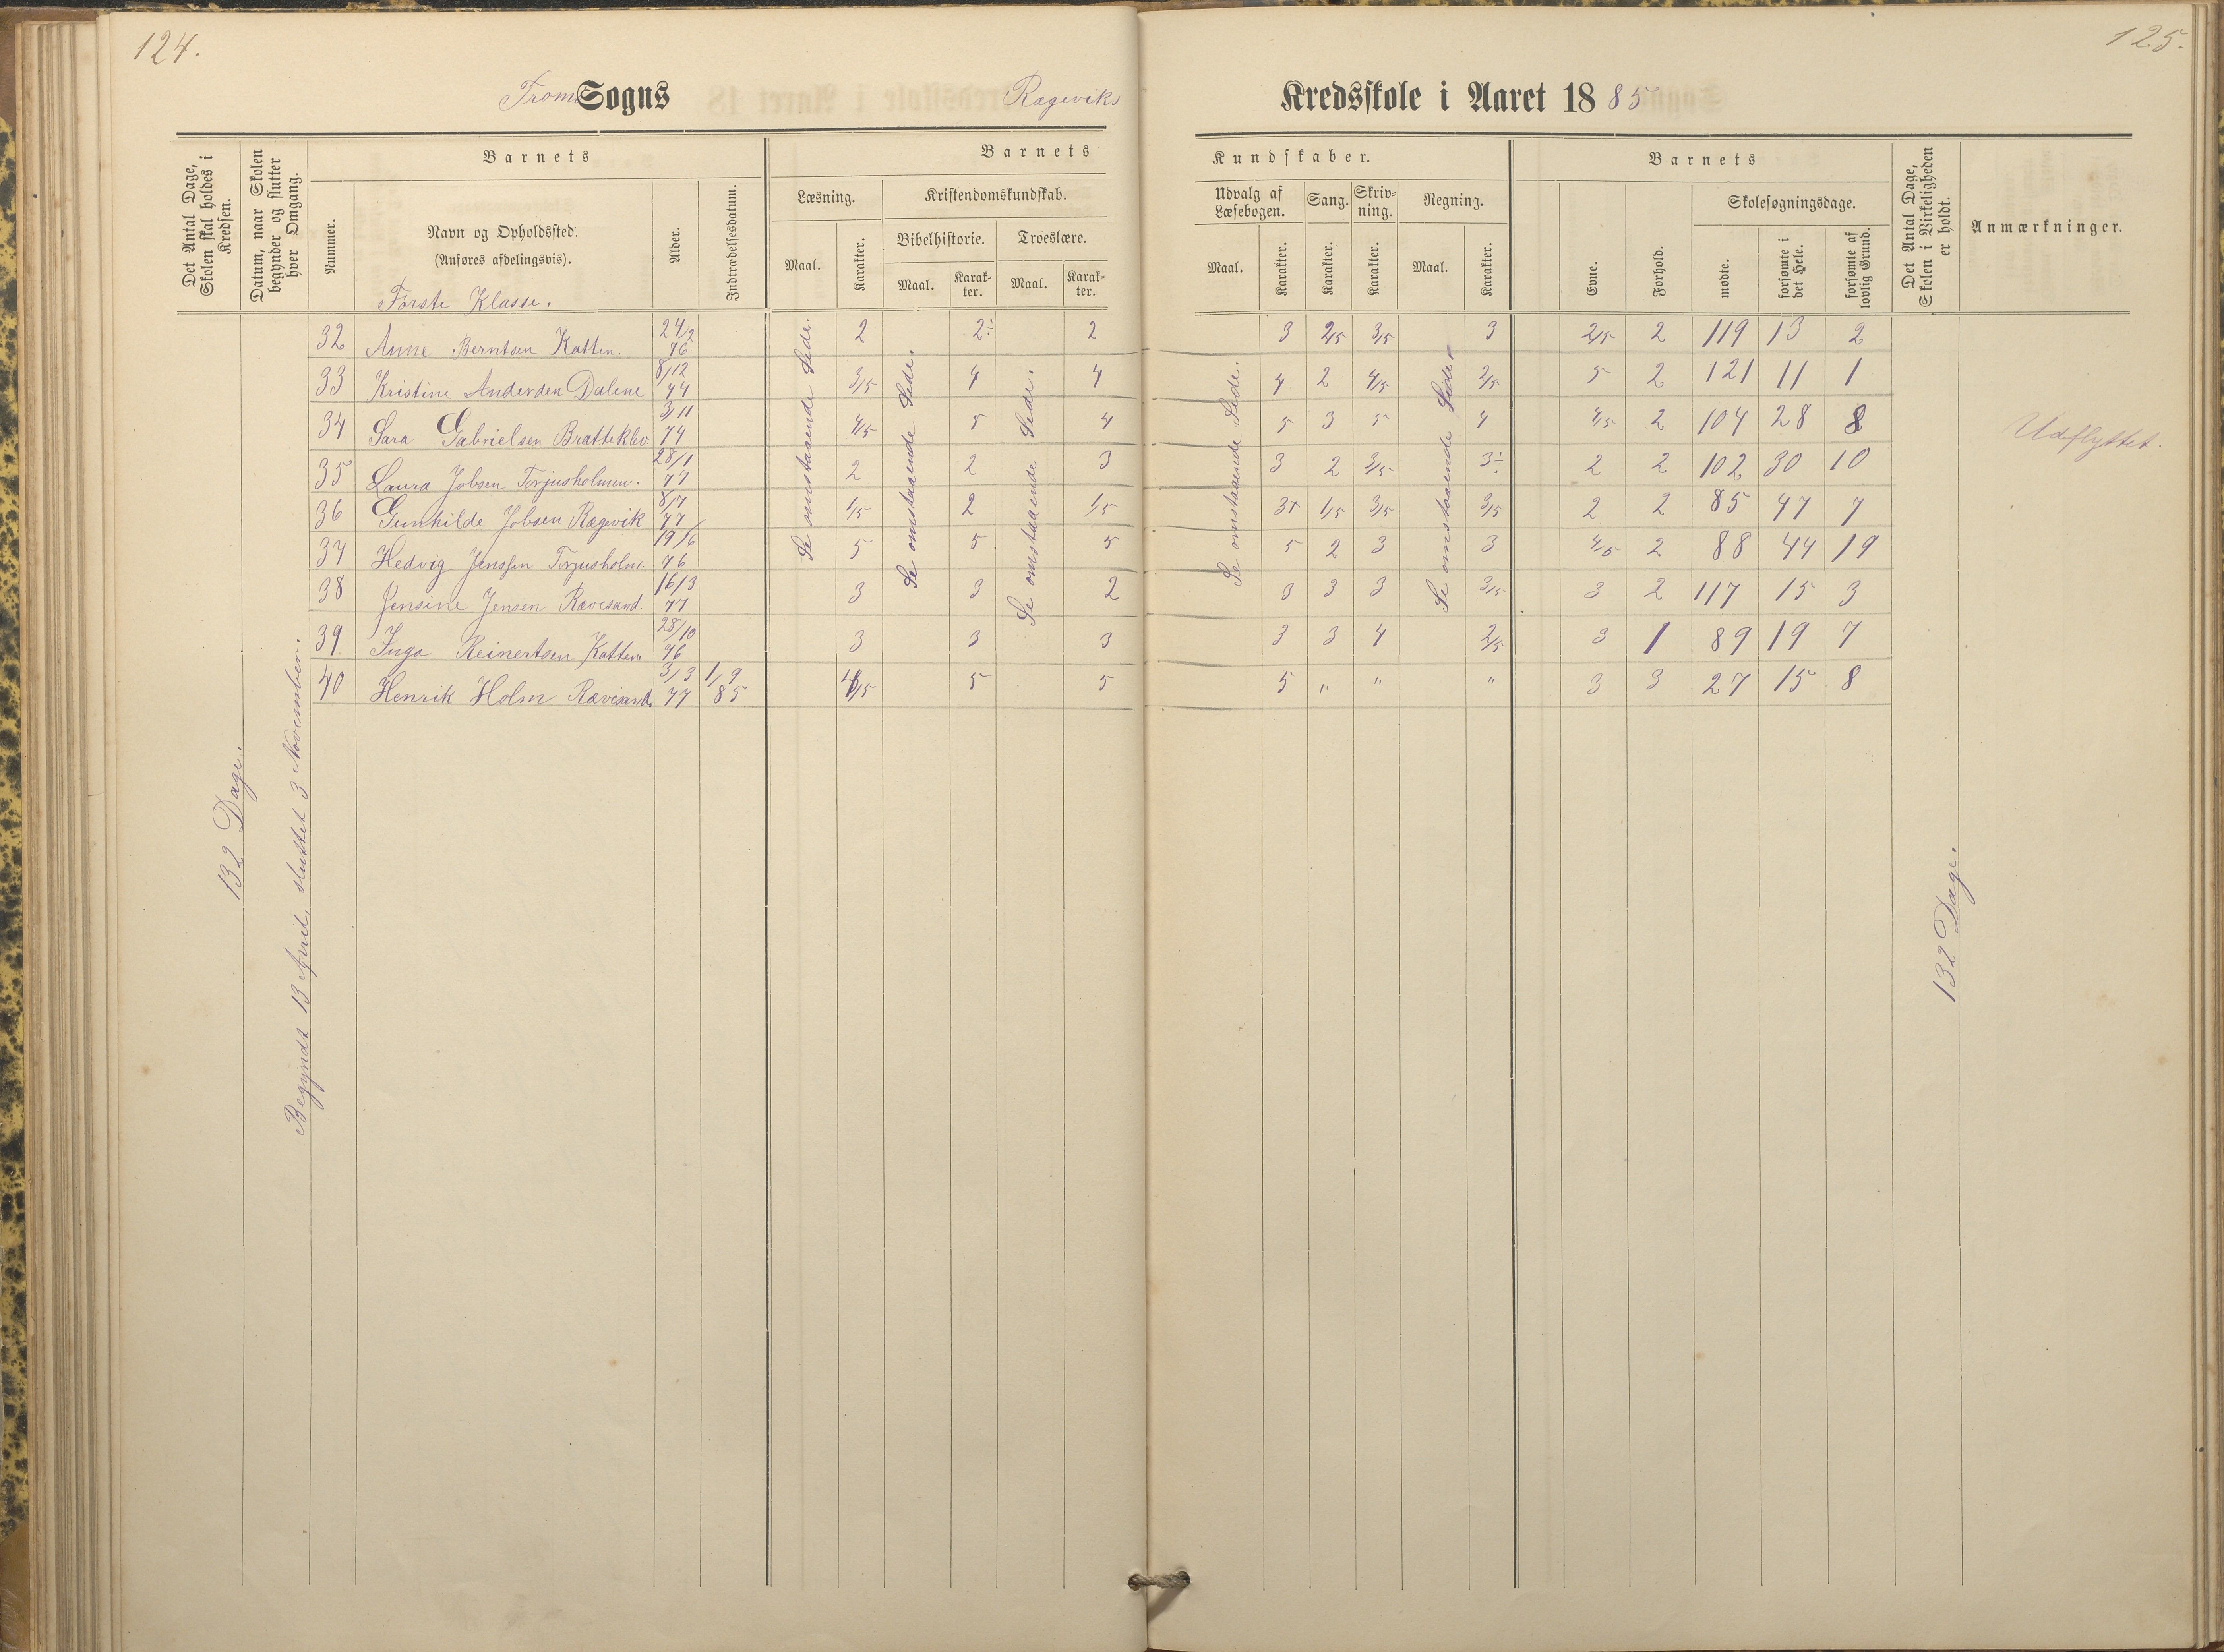 124.
125.
Tromø Sogns Rægeviks Kredsskole i Aaret 1885
Det Antal Dage, Skolen skal holdes i Kredsen.
Datum, naar Skolen begynder og slutter hver Omgang.
Barnets
Nummer.
Navn og Opholdssted.
(Anføres afdelingsvis).
Første Klasse.
Alder.
Indtrædelsesdatum.
Barnets Kundskaber.
Læsning.
Maal.
Karakter.
Kristendomskundskab.
Bibelhistorie.
Maal.
Karakter.
Troeslære.
Maal.
Karakter.
Udvalg af Læsebogen.
Maal.
Karakter.
Sang.
Karakter.
Skrivning.
Karakter.
Regning.
Maal.
Karakter.
Barnets
Evne.
Forhold.
Skolesøgningsdage.
mødte.
forsømte i det Hele.
forsømte af lovlig Grund.
Det Antal Dage, Skolen i Virkeligheden er holdt.
Anmærkninger.
132 Dage.
Begyndt 13 April, sluttet 3 November.
Se omstaaende Side.
Se omstaaende Side.
Se omstaaende Side.
Se omstaaende Side.
Se omstaaende Side.
32 Anne Berntsen Katten. 24/2 76 2 2÷ 2 3 2/15 3/15 3 2/15 2 119 13 2
33 Kristine Andersen Dalene 8/12 74 3/15 4 4 4 2 4/15 2/15 5 2 121 11 1
34 Sara Gabrielsen Bratteklev 3/11 74 4/15 5 4 5 3 5 4 4/15 2 104 28 8 Udflyttet.
35 Laura Jobsen Torjusholmen. 28/1 77 2 2 3 3 2 3/15 3÷ 2 2 102 30 10
36 Gunhilde Jobsen Rægevik 8/7 77 1/15 2 1/5 3+ 1/15 3/15 3/15 2 2 85 47 7
37 Hedvig Janssen Torjusholm. 19/6 76 5 5 5 5 2 3 3 4/15 2 88 44 19
38 Jensine Jensen Rævesand. 16/3 77 3 3 2 3 3 3 3/15 3 2 117 15 3
39. Inga Reinertsen Katten 28/10 76 3 3 3 3 3 4 2/15 3 1 89 19 7
40 Henrik Holm Rævesand. 3/3 77 1/9 85 4/15 5 5 5 " " " 3 3 27 15 8
132 Dage.